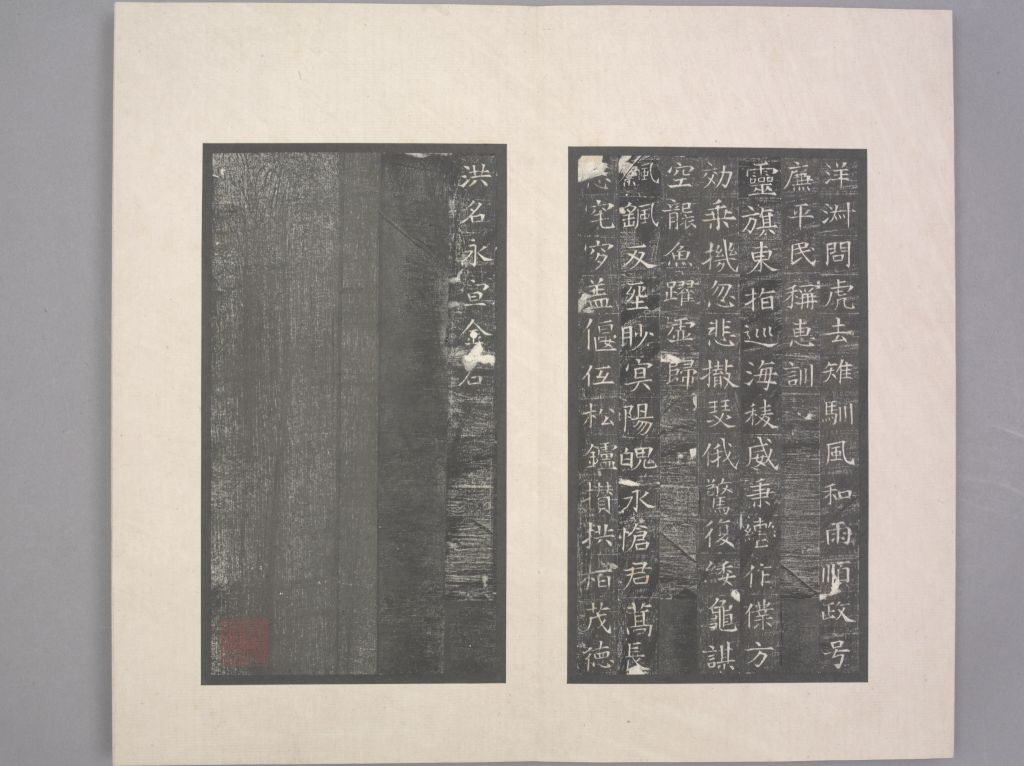 洋問虎去雉馴風和雨順政号
廉平民稱惠訓
靈旗東指巡海稜威秉轡作僕方
効乘機忽悲撤瑟俄驚復緌龜謀
空龍魚躍虛歸
反眇冥陽魄永愴君蒿長
窀穸盖偃伍松鑪攢拱栢茂德
洪名永宣金石